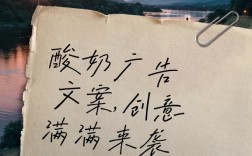 酸奶广告
文案,创意
满满来袭